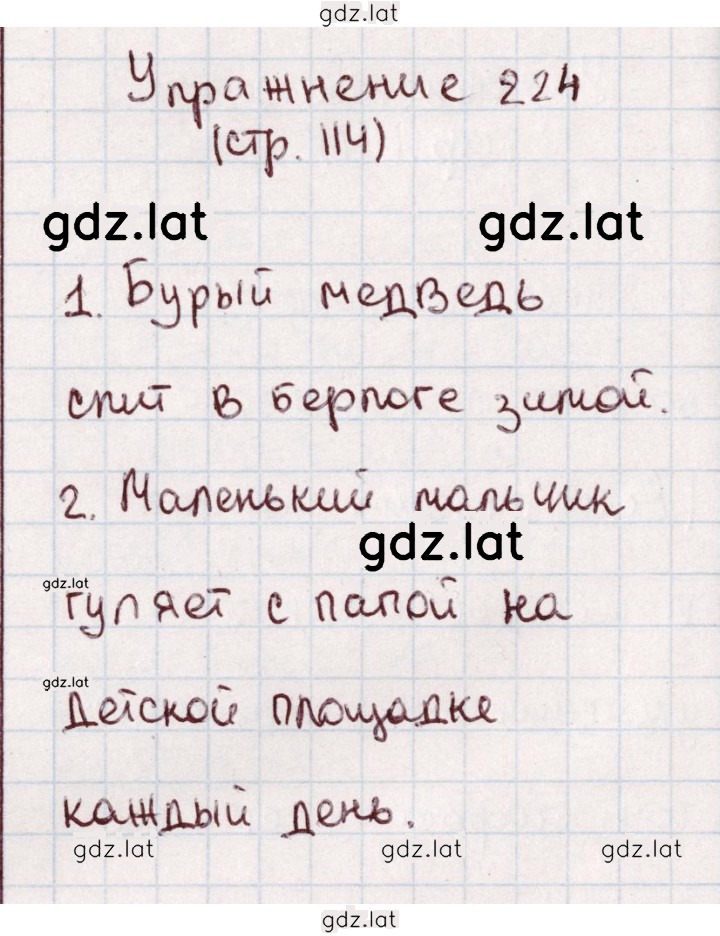 gdz.lat
Упражнение 224
(стр. 114)
gdz.lat gdz.lat
1. Бурый медведь
спит в берлоге зимой.
2. Маленький мальчик
gdz.lat
gdz.lat
гуляет с папой на
gdz.lat
детской площадке
каждый день.
gdz.lat gdz.lat gdz.lat
gdz.lat